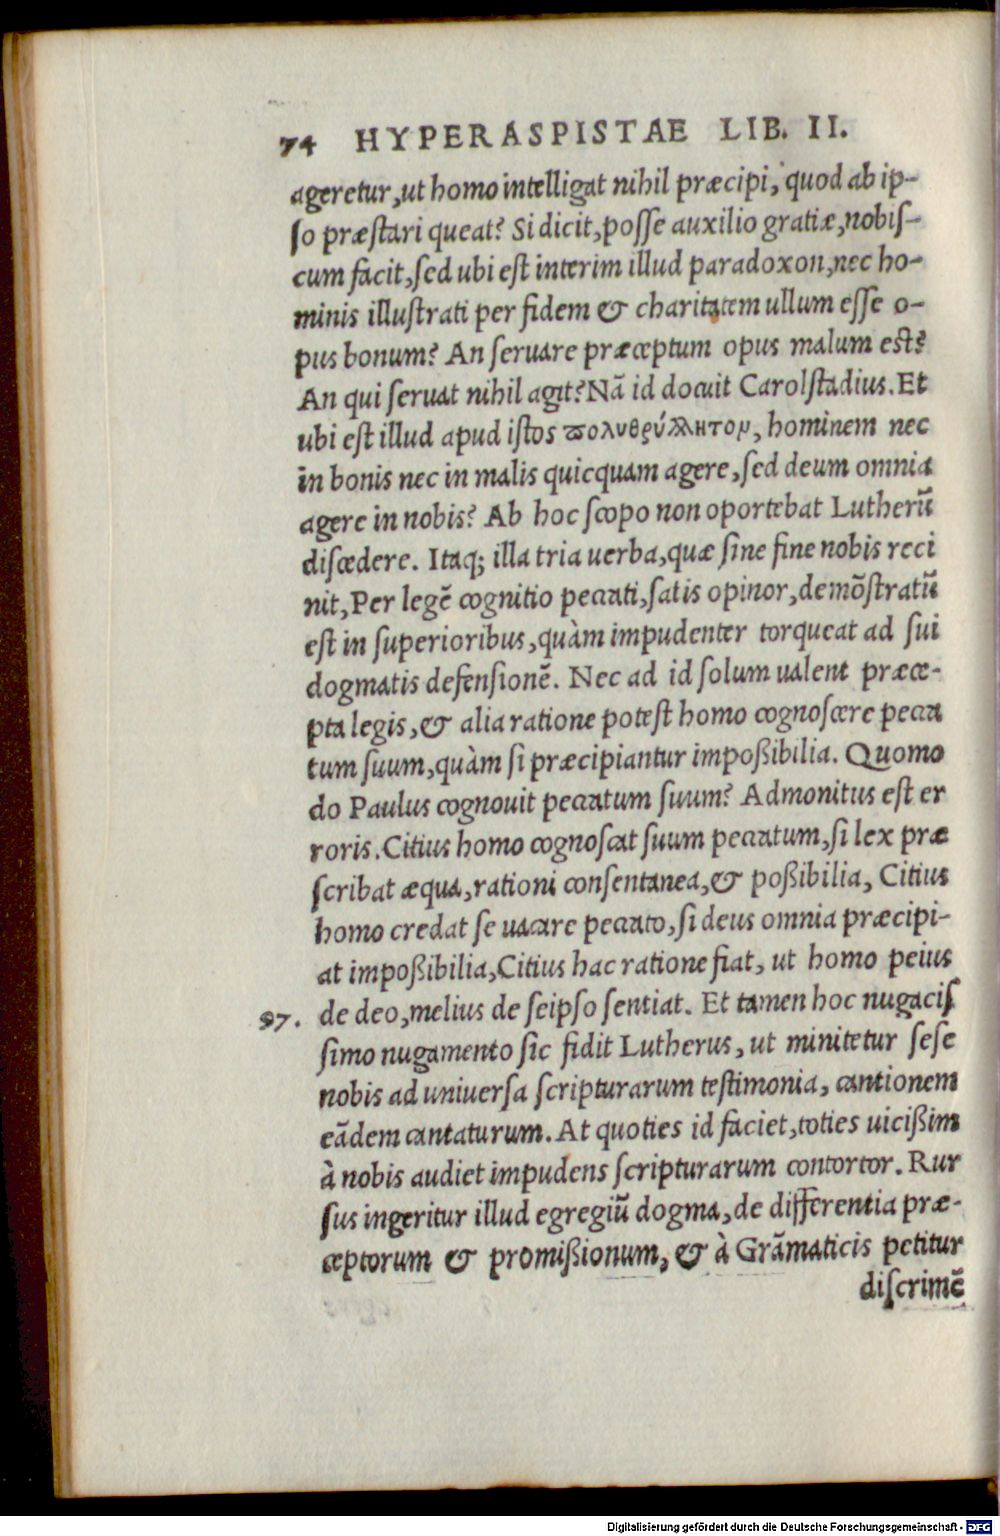 74 HYPERASPISTAE LIB. II.
ageretur, ut homo intelligat nihil præcipi, quod ab ip-
ſo præſtari queat? Si dicit, poſſe auxilio gratiæ, nobiſ-
cum facit, ſed ubi eſt interim illud paradoxon, nec ho-
minis illuſtrati per fidem & charitatem ullum eſſe o-
pus bonum? An ſeruare præceptum opus malum eſt?
An qui ſeruat nihil agit? Nã id docuit Carolſtadius. Et
ubi eſt illud apud iſtos πολυθρύλλητον, hominem nec
in bonis nec in malis quicquam agere, ſed deum omnia
agere in nobis? Ab hoc ſcopo non oportebat Lutherũ
diſcedere. Itaq; illa tria uerba, quæ ſine fine nobis reci
nit, Per legẽ cognitio peccati, ſatis opinor, demõſtratũ
eſt in ſuperioribus, quàm impudenter torqueat ad ſui
dogmatis defenſionẽ. Nec ad id ſolum ualent præce-
pta legis, & alia ratione poteſt homo cognoſcere pecca
tum ſuum, quàm ſi præcipiantur impoßibilia. Quomo
do Paulus cognouit peccatum ſuum? Admonitus eſt er
roris. Citius homo cognoſcat ſuum peccatum, ſi lex præ
ſcribat æqua, rationi conſentanea, & poßibilia, Citius
homo credat ſe uacare peccato, ſi deus omnia præcipi-
at impoßibilia, Citius hac ratione fiat, ut homo peius
97. de deo, melius de ſeipſo ſentiat. Et tamen hoc nugaciſ
ſimo nugamento ſic fidit Lutherus, ut minitetur ſeſe
nobis ad uniuerſa ſcripturarum teſtimonia, cantionem
eãdem cantaturum. At quoties id faciet, toties uicißim
à nobis audiet impudens ſcripturarum contortor. Rur
ſus ingeritur illud egregiũ dogma, de differentia præ-
ceptorum & promißionum, & à Grãmaticis petitur
diſcrimẽ
Digitalisierung gefördert durch die Deutsche Forschungsgemeinschaft - DFG